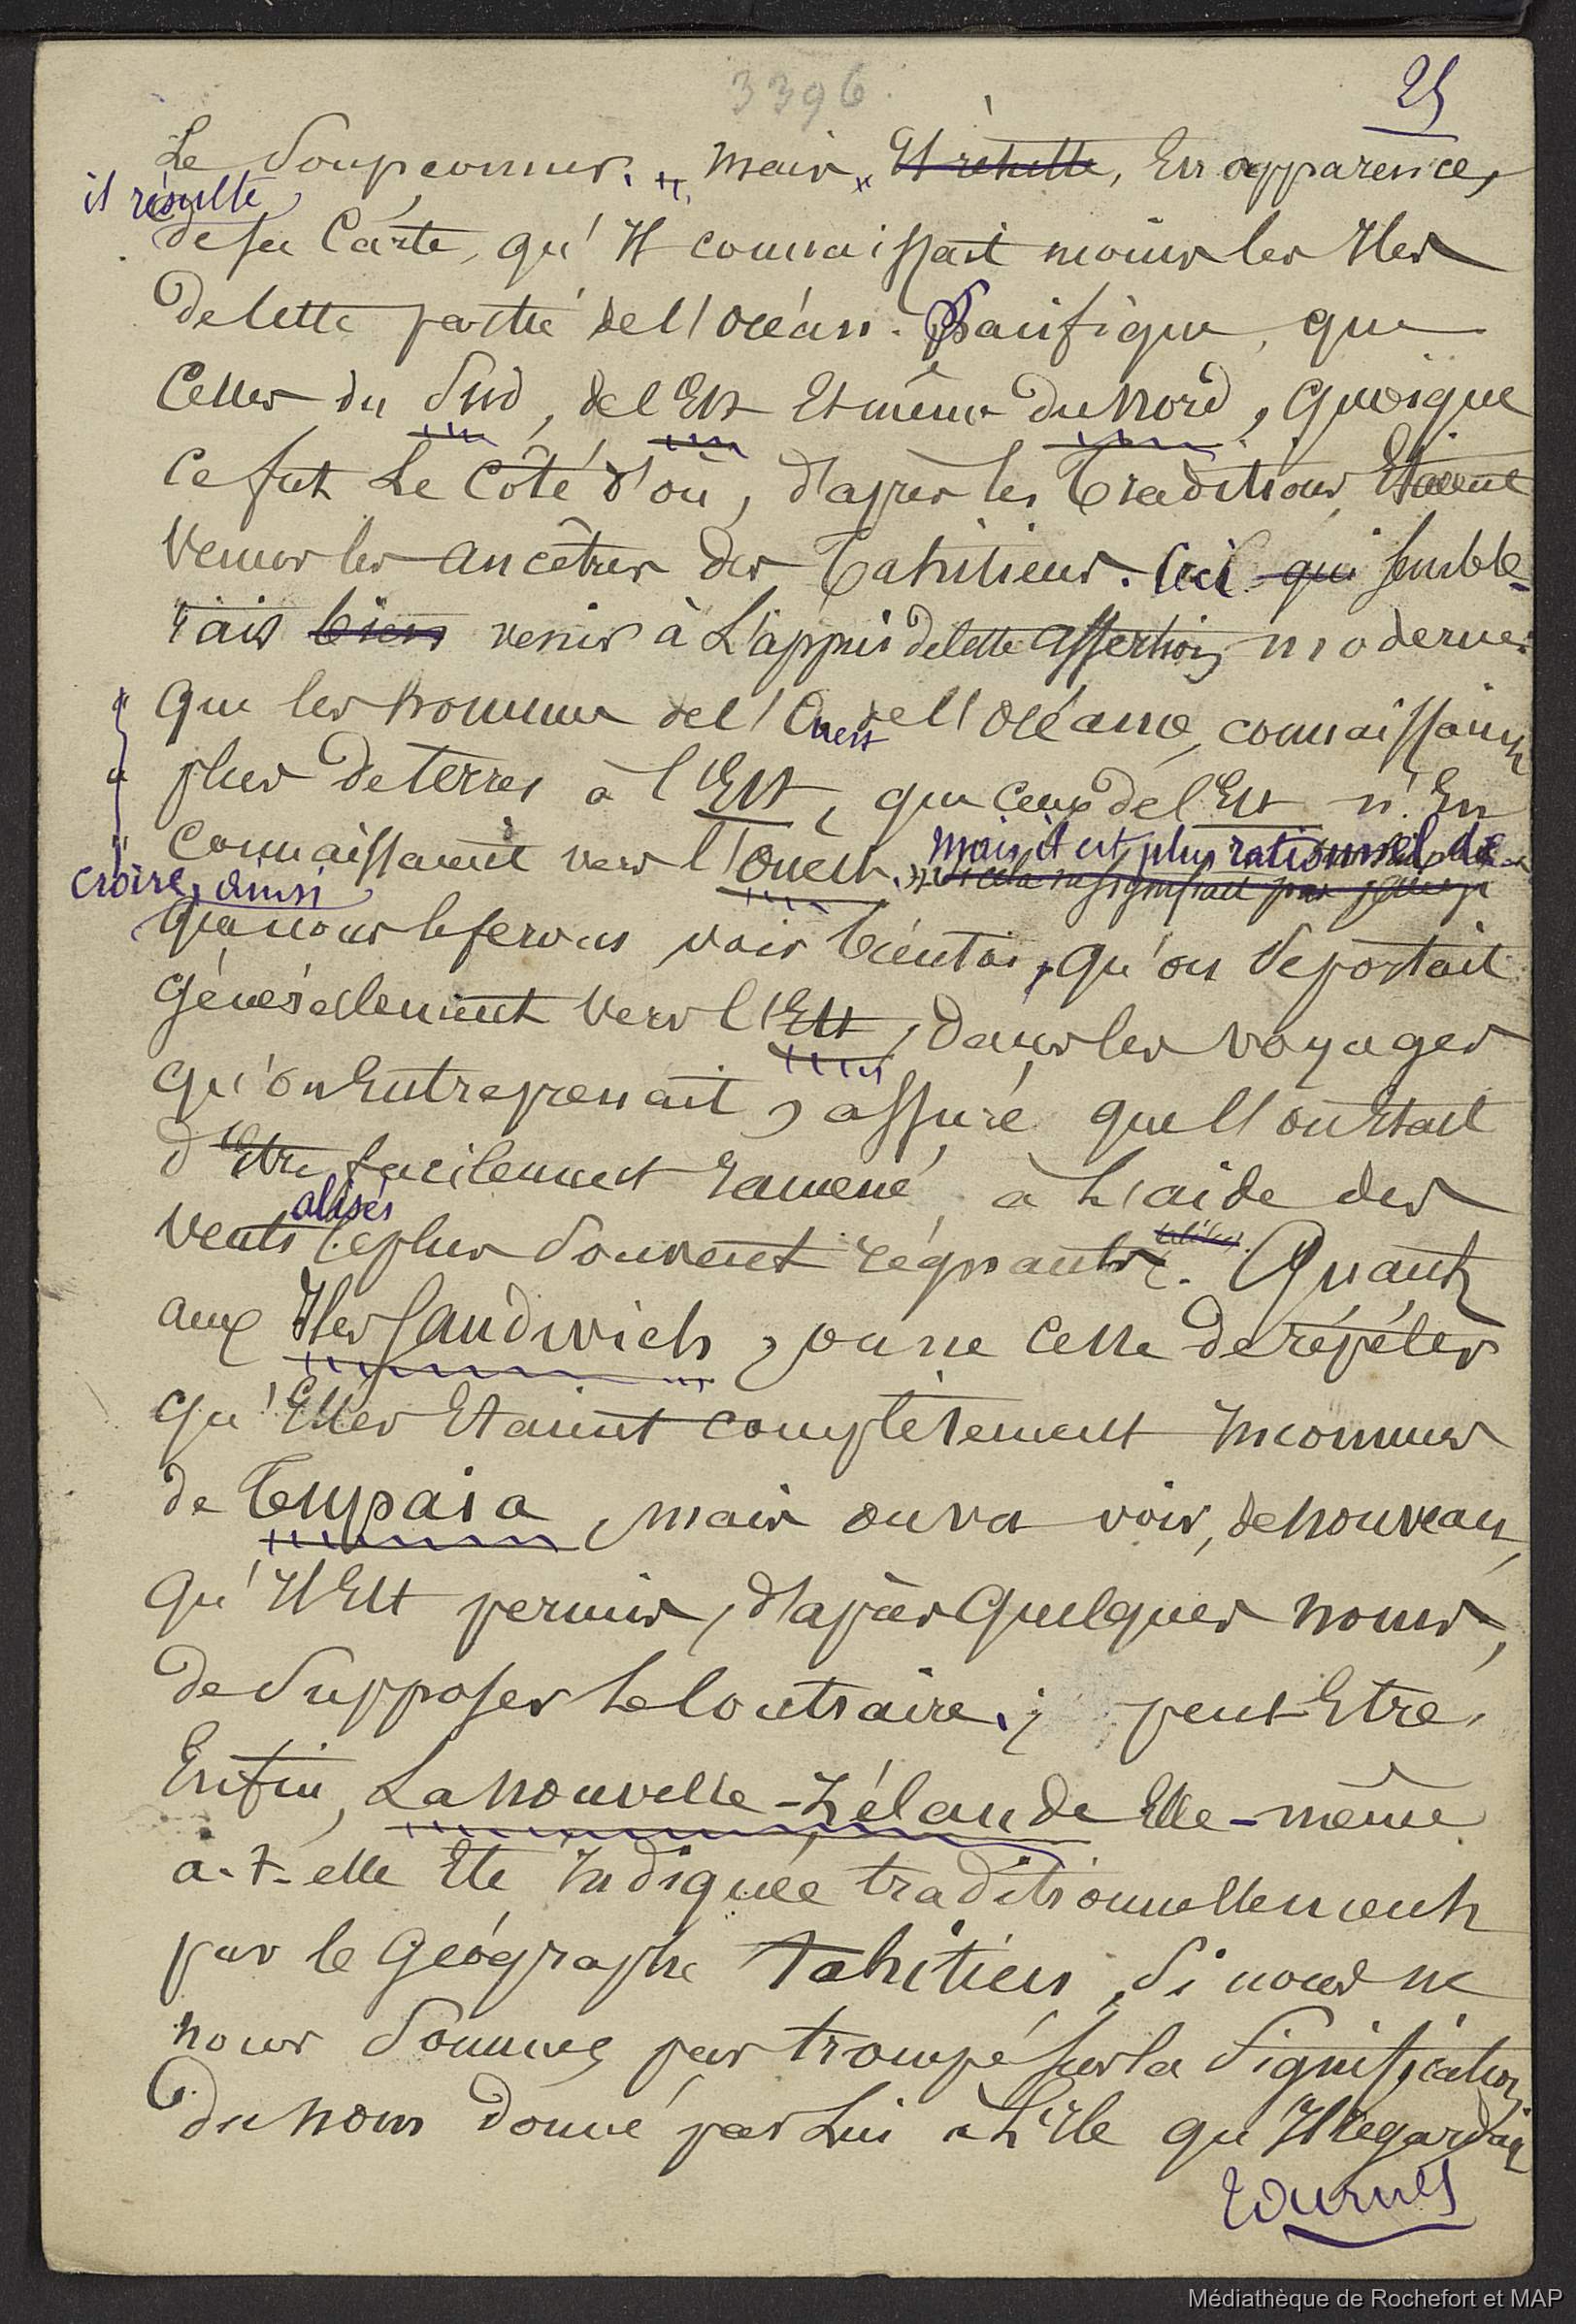 3396
25
Le Soupçonner. Mais Et résulte, En apparence,
il résulte
de sa Carte, qu'Il connaissait moins les Iles
de Cette partie de l'océan Pacifique, que
Celles du Sud, de l'Est Et même du Nord, quoique
Ce fut Le Côté d'où, d'après les Traditions, Etaient
Venus les Ancêtres des Tahitiens. Ceci qui semble-
rait bien venir à L'appui de Cette Assertion moderne:
Que les hommes de l'Ouest de l'Océanie, connaissaient
plus de terres à l'Est, que ceux de l'Est n'En
Connaissaient vers l'Ouest. mais il est plus rationnel de
croire, ainsi
que nous le ferons voir bientôt, qu'on Se portait
Généralement Vers l'Est, dans les voyages
qu'on Entreprenait, assuré que l'on Etait
d'Etre facilement Ramené, à L'aide des
alisés
Vents le plus Souvent régnants. Quant
aux Iles Sandwich, on ne Cesse de répéter
qu'Elles Etaient complètement Inconnues
de Tupaia, mais on va voir, de nouveau,
qu'Il Est permis, d'après Quelques noms,
de Supposer Le Contraire; peut Etre,
Enfin, La Nouvelle-Zélande Elle-même
a-t-elle Eté Indiquée traditionnellement
par le Géographe Tahitien, Si nous ne
nous Sommes pas trompé Sur la Signification
du nom donné par Lui à L'Ile qu'Il regardait
tournez
Médiathèque de Rochefort et MAP